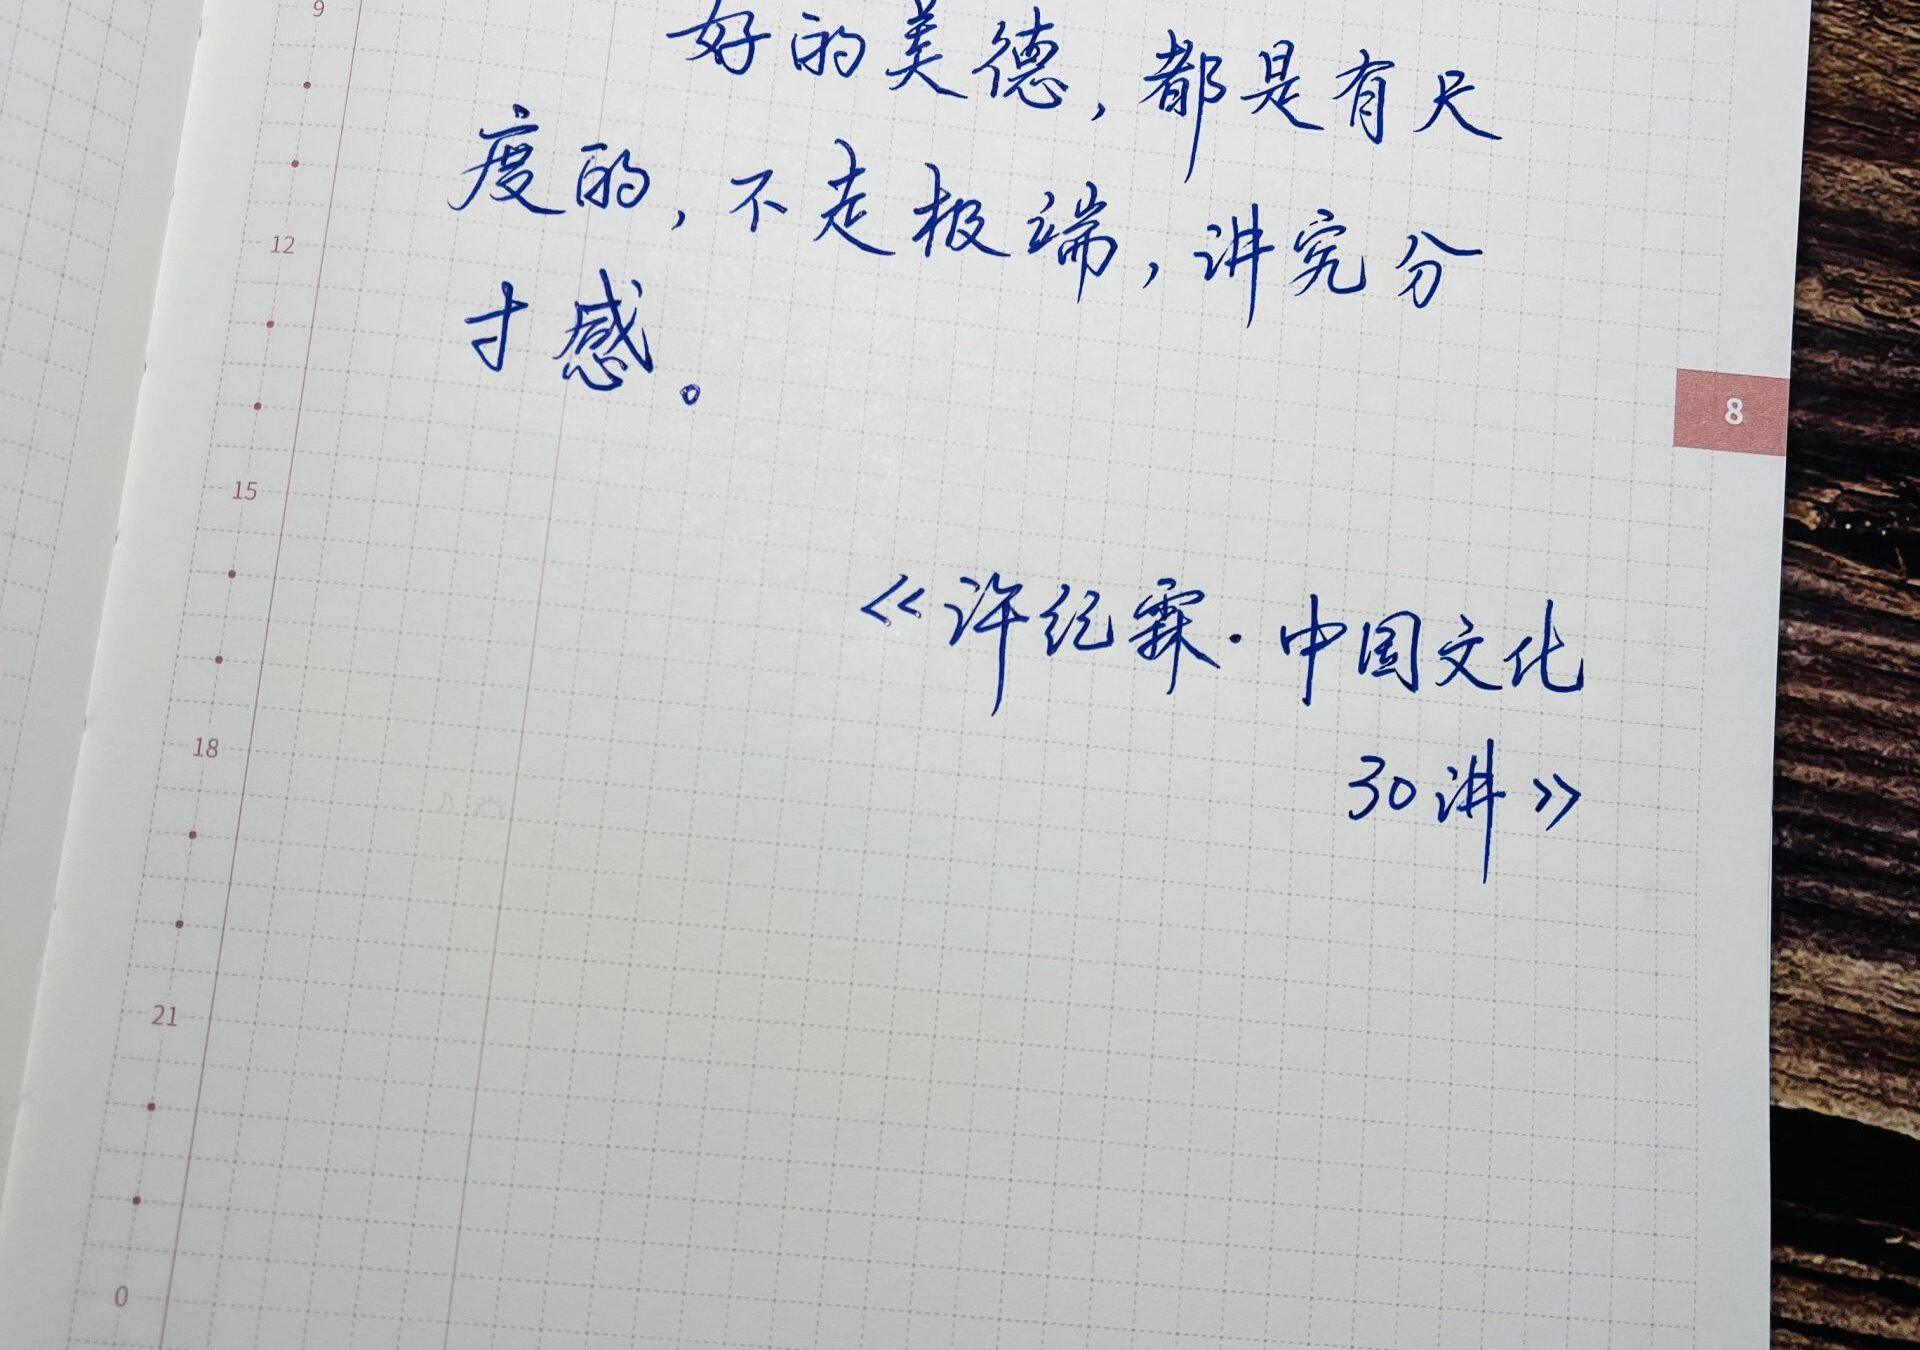 9
好的美德，都是有尺
度的，不走极端，讲究分
12
寸感。
8
15
《许纪霖·中国文化
18
30讲》
21
0